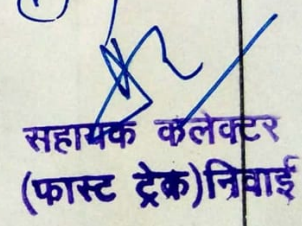 सहायक कलेक्टर
(फास्ट ट्रेक)निवाई